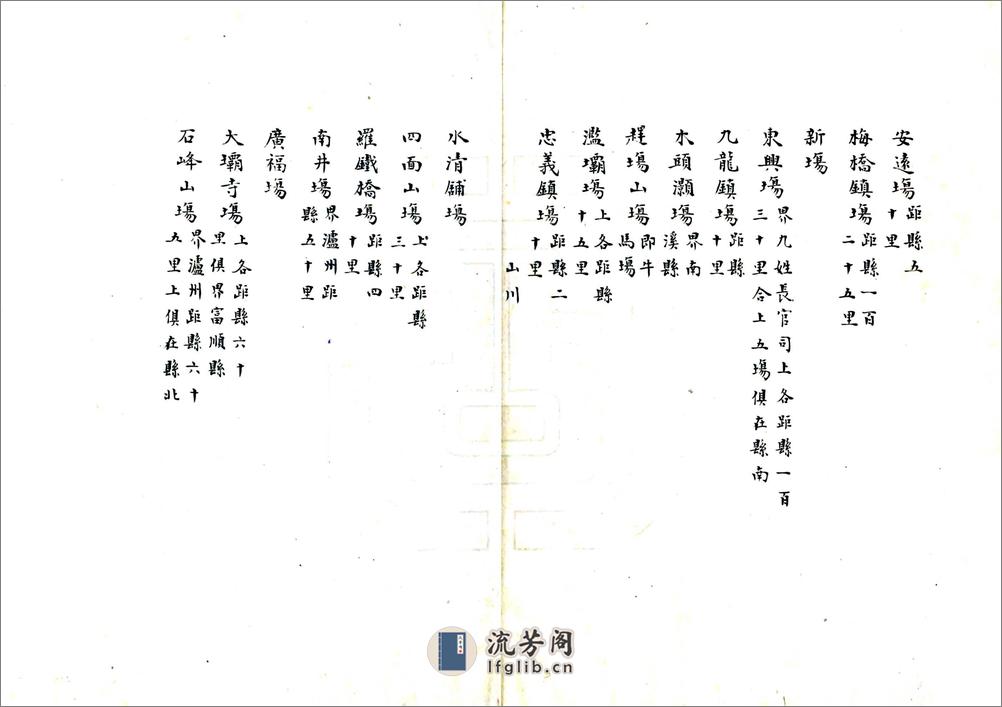 安遠塲距縣五十里
梅橋鎮塲距縣一百二十五里
新塲
東興塲界九姓長官司上各距縣一百三十里合上五塲俱在縣南
九龍鎮塲距縣十里
木頭灝塲界南溪縣
趕塲山塲即牛馬塲
濫壩塲上各距縣十五里
忠義鎮塲距縣二十里
山川
水清鋪塲
四面山塲上各距縣三十里
羅鐵橋塲距縣四十里
南井塲界瀘州距縣五十里
廣福塲
大壩寺塲上各距縣六十里俱界富順縣
石峰山塲界瀘州距縣六十五里上俱在縣北
流芳阁
lfglib.cn